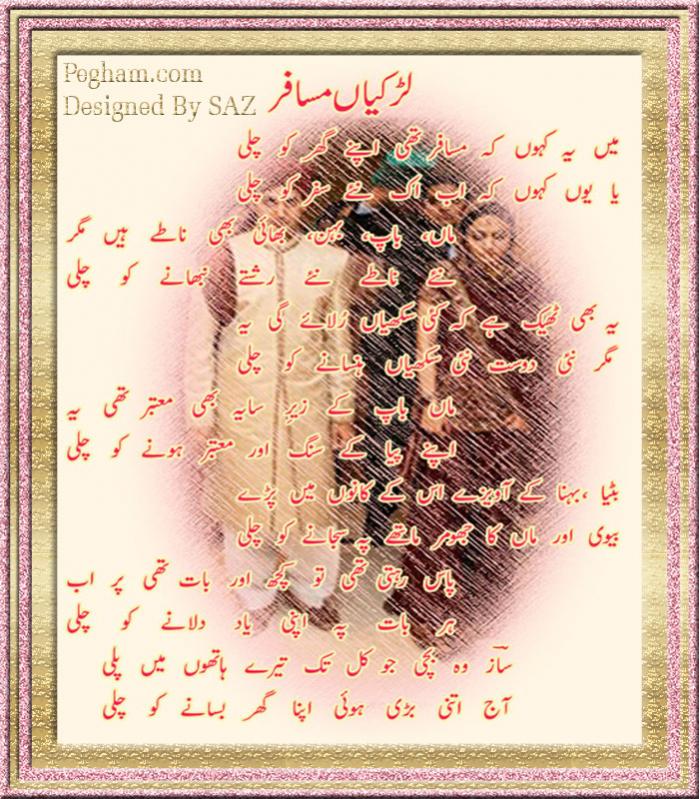 Pegham.com
Designed By SAZ
لڑکیاں مسافر
میں یہ کہوں کہ مسافر تھی اپنے گھر کو چلی
یا یوں کہوں کہ اب اک نئے سفر کو چلی
ماں، باپ، بہن، بھائی بھی ناطے ہیں مگر
نئے ناطے نئے رشتے نبھانے کو چلی
یہ بھی ٹھیک ہے کہ کئی سکھیاں رُلائے گی یہ
مگر نئی دوست نئی سکھیاں ہنسانے کو چلی
ماں باپ کے زیرِ سایہ بھی معتبر تھی یہ
اپنے پیا کے سنگ اور معتبر ہونے کو چلی
بٹیا ،بہنا کے آویزے اس کے کانوں میں پڑے
بیوی اور ماں کا جھومر ماتھے پہ سجانے کو چلی
پاس رہتی تھی تو کچھ اور بات تھی پر اب
ہر بات پہ اپنی یاد دلانے کو چلی
سازؔ وہ بچی جو کل تک تیرے ہاتھوں میں پلی
آج اتنی بڑی ہوئی اپنا گھر بسانے کو چلی